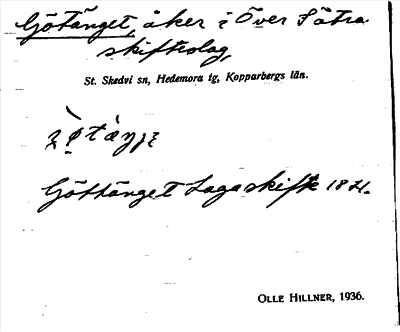 Götänget, åker i Över Sätra
skifteslag,
St. Skedvi sn, Hedemora tg, Kopparbergs län.
Göttänget Laga skifte
OLLE HILLNER, 1936.